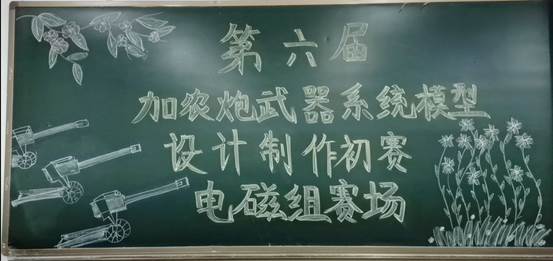 第六届
加农炮武器系统模型
设计制作初赛
电磁组赛场